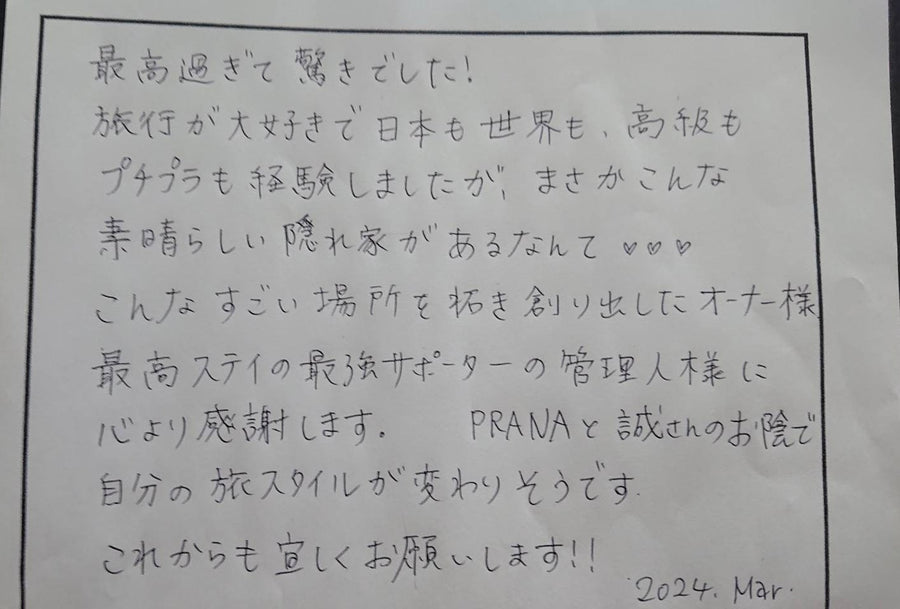 最高過ぎて驚きでした!
旅行が大好きで日本も世界も、高級も
プチプラも経験しましたが、まさかこんな
素晴らしい隠れ家があるなんて♡♡♡
こんなすごい場所を拓き創り出したオーナー様
最高ステイの最強サポーターの管理人様に
心より感謝します。 PRANAと誠さんのお陰で
自分の旅スタイルが変わりそうです.
これからも宜しくお願いします!!
2024. Mar.